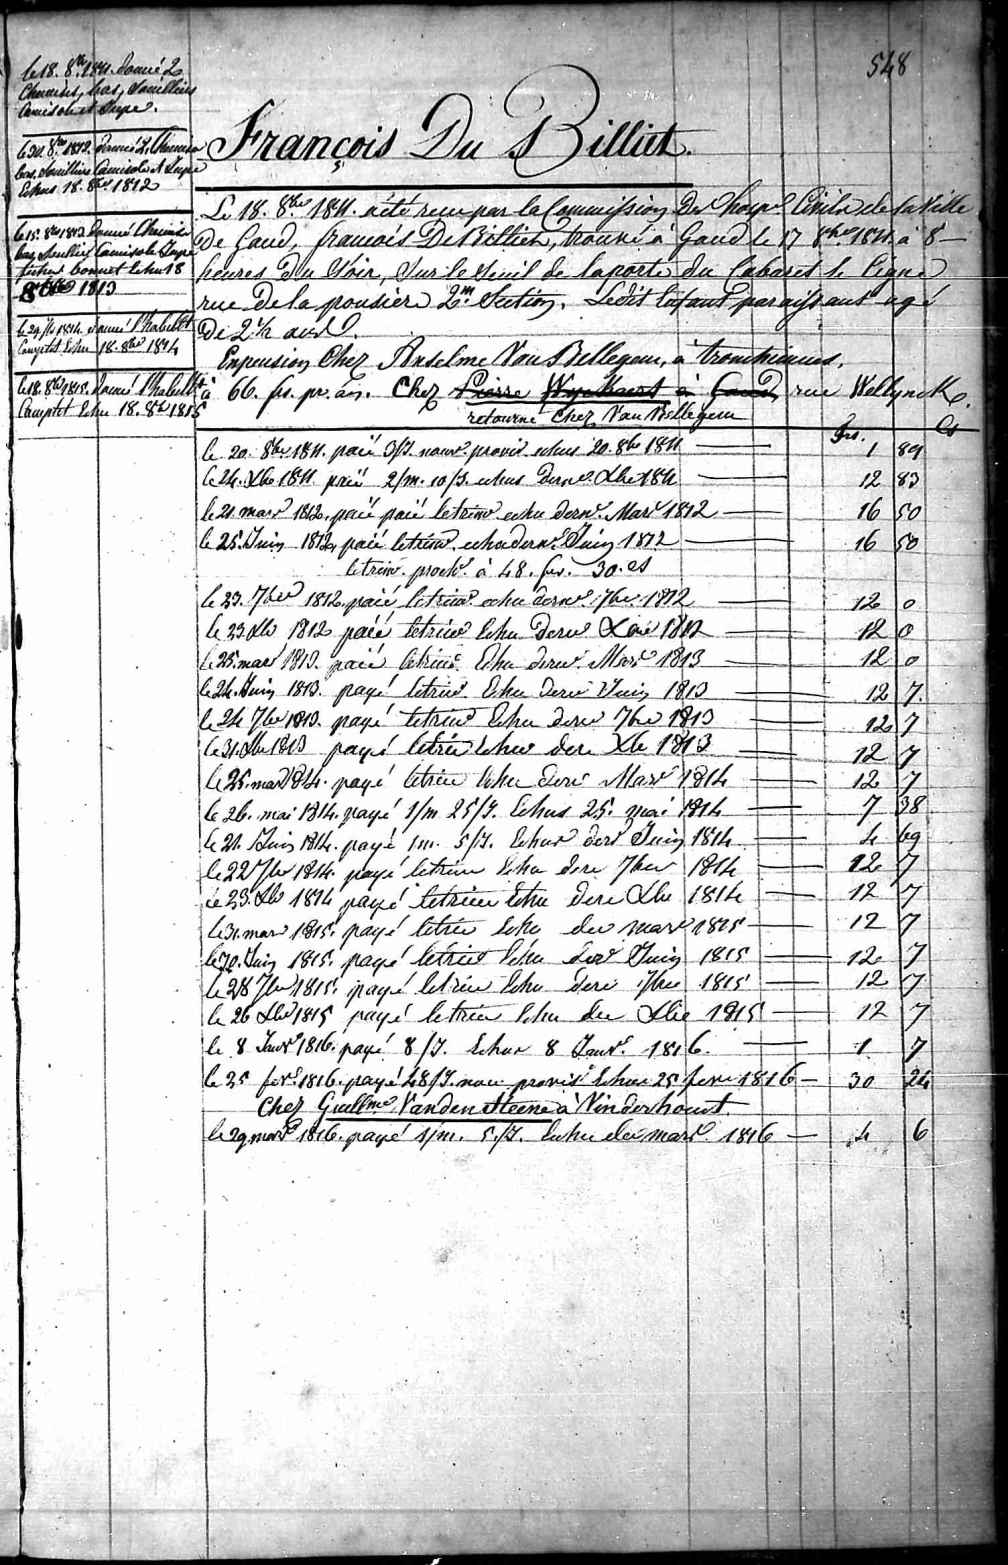 548
le 18. 8bre 1811. donné 2
Chemises, bas, Souilliers
Camisole et Jupe.
le 20. 8bre 1812. donné 2 Chemises
bas, Souilliers Camisole et Jupe
Echus 18. 8bre 1812
le 15. 8bre 1813 donné Chemise
bas, Souliers Camisole Jupe
fichu bonnet Echu 18
8bre 1813
le 29 1814. donné l'habillt
Complet Echu 18. 8bre 1814
le 18. 8bre 1815. donné l'habillt
Complet Echu 18. 8bre 1815
François Du Billiet.
Le 18. 8bre 1811. a été recu par la Commission Des hospes Civils de la Ville
De Gand, francois De Billiet, trouvé à Gand le 17 8bre 1811. à 8
heures du Soir, Sur le Seuil de la porte du Cabaret le Cigne
rue De la poudière 2me Section. Le dit Enfant paraissant agé
De 2 1/2 ans
Enpension Chez Anselme Van Bellegem, à tronchiennes,
à 66. frs. pr. an. Chez Pierre Wyckaert à Gand, rue Wellynck.
retourné Chez Van Bellegem
Frs. Cs
le 20. 8bre 1811. paié 3/J. nour provis. echus 20. 8bre 1811 1 89
le 24. Xbre 1811. paié 2/m. 10/J. echus Derne. Xbre 1811 12 83
le 21. mars 1812. paié paié le trim. echu derne. Mars 1812 16 50
le 25. Juin 1812, paié le trim. echu derne. Juin 1812 16 50
le trim. proch. à 48. frs. 30. cs
le 23. 7bre 1812. paié le trim. echu derne. 7bre. 1812 12 0
le 23 Xbre 1812 paié le trim Echu Derne Xbre 1812 12 0
le 25. mars 1813. paié le trim. Echu derne. Mars 1813 12 0
le 24. Juin 1813. payé le trim. Echu dere Juin 1813 12 7.
le 24 7bre 1813. payé le trim Echu dere 7bre 1813 12 7
le 31. Xbre 1813 payé le trim Echu dere Xbre 1813 12 7
le 25. mars 1814. payé le trim Echu dere Mars 1814 12 7
le 26. mai 1814. payé 1/m 25/J. Echus 25. mai 1814 7 38
le 21. Juin 1814. payé 1m. 5/J. Echus dere Juin 1814 4 69
le 22 7bre 1814. payé le trim Echu dere 7bre 1814 12 7
le 23. Xbre 1814 payé le trim Echu dere Xbre 1814 12 7
le 31. mars 1815. payé le trim Echu der mars 1815 12 7
le 30. Juin 1815. payé le trim Echu der Juin 1815 12 7
le 28 7bre 1815. payé le trim Echu dere 7bre 1815 12 7
le 26 Xbre 1815 payé le trim Echu der Xbre 1815 12 7
le 8 Janv. 1816. payé 8/J. Echus 8 Janv. 1816. 1 7
le 25 fevr. 1816. payé 48/J. nour provis Echus 25 fevr 1816 30 24
Chez Guillme Vanden Steene à Vinderhoutt
le 29 mars 1816. payé 1/m. 5/J. Echu der mars. 1816 4 6